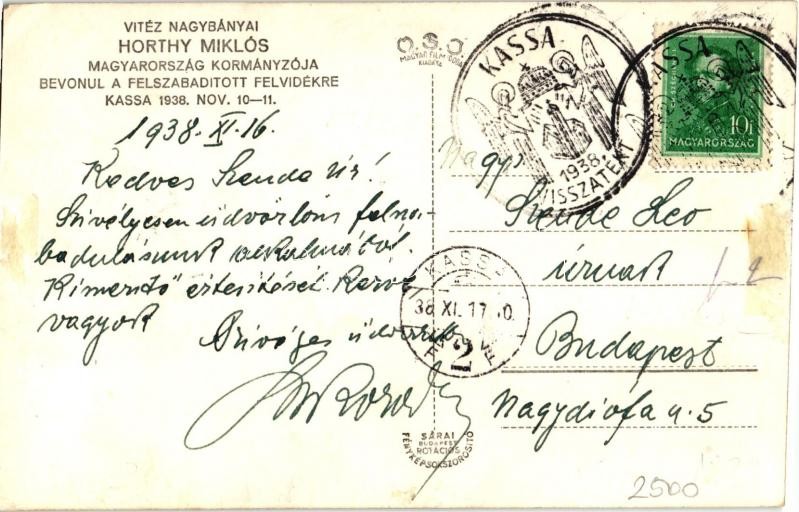 VITÉZ NAGYBÁNYAI
HORTHY MIKLÓS
MAGYARORSZÁG KORMÁNYZÓJA
BEVONUL A FELSZABADITOTT FELVIDÉKRE
KASSA 1938. NOV. 10—11.
1938. XI. 16.
Kedves Szende úr!
Szívélyesen üdvözlöm felsza-
badulásunk alkalmából.
Kimerítő értesítését kérve
vagyok
Szíves üdvözlettel
M.S.J.
MAGYAR FILM IRODA
KIADÁSA
KASSA
1938.
VISSZATÉRT
KASSA
10f
MAGYARORSZÁG
Nagys
Szende Leo
úrnak
Budapest
Nagydiófa u. 5
KASSA
38 XI. 17 10.
2
SÁRAI
BUDAPEST
ROTÁCIÓS
FÉNYKÉPSOKSZOROSITÓ
2500